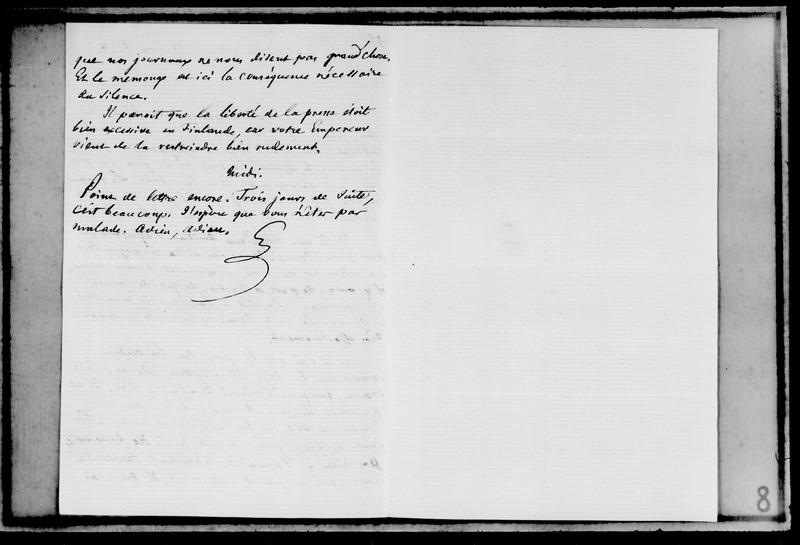 que nos journaux ne nous disent pas grand'chose.
Et le mensonge est ici la conséquence nécessaire
du silence.
Il paroit que la liberté de la presse étoit
bien excessive en Finlande, car votre Empereur
vient de la restreindre bien rudement.
Midi.
Point de lettre encore. Trois jours de suite,
c'est beaucoup. J'espère que vous n'êtes pas
malade. Adieu, adieu.
8